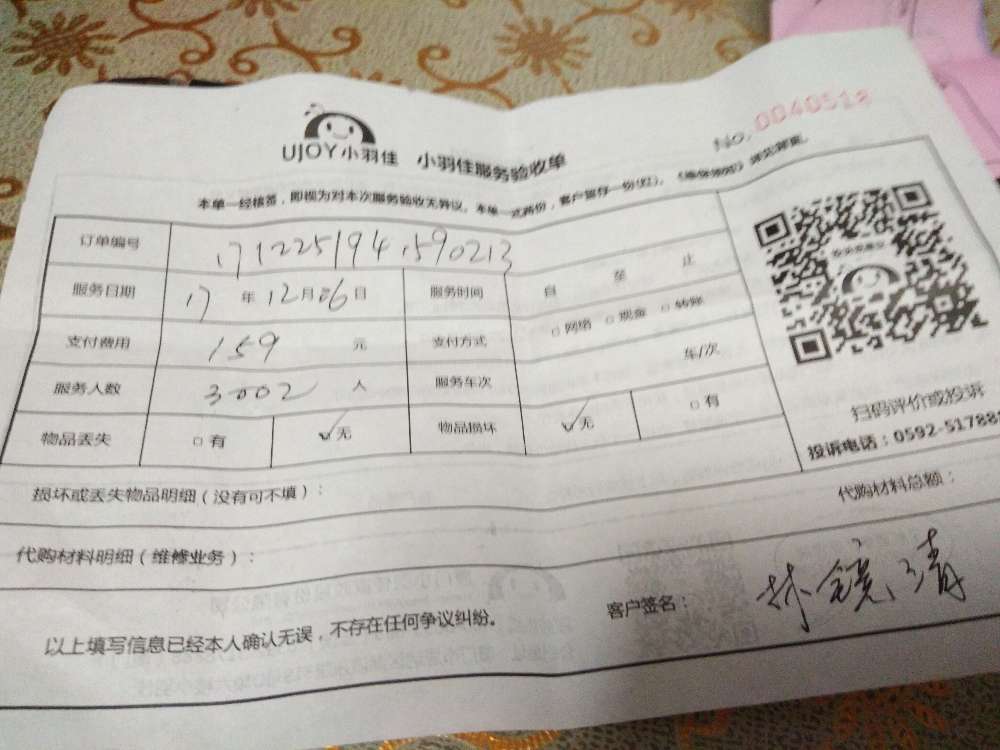 No. 0040518
UJOY小羽佳 小羽佳服务验收单
本单一经核签，即视为对本次服务验收无异议。本单一式两份，客户留存一份(红)。
订单编号 171225194590213
服务日期 17 年 12 月 26 日 服务时间 自 至 止
支付费用 159 元 支付方式 □ 网络 □ 现金 □ 转账
服务人数 3002 人 服务车次 车/次
物品丢失 □ 有 ✓无 物品损坏 ✓无 □ 有
扫码评价或投诉
投诉电话：0592-51788
损坏或丢失物品明细（没有可不填）：
代购材料总额：
代购材料明细（维修业务）：
以上填写信息已经本人确认无误，不存在任何争议纠纷。
客户签名： 林镜清